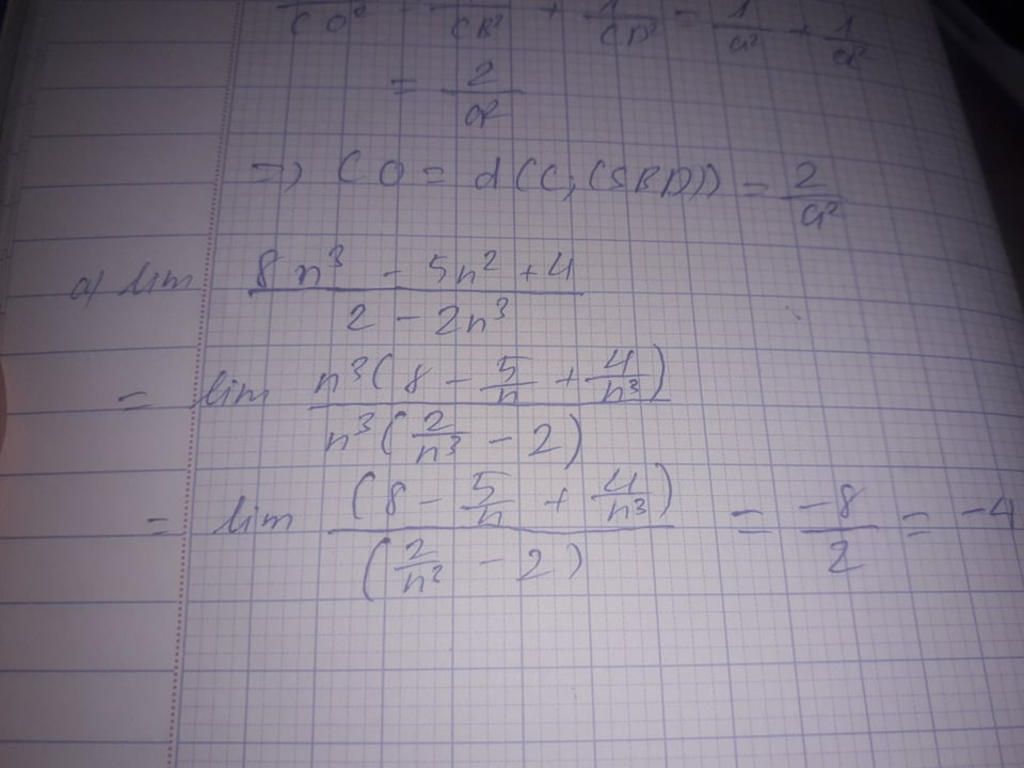 1/CO² = 1/CB² + 1/CD² = 1/a² + 1/a²
= 2/a²
=> CO = d(C;(SBD)) = 2/a²
a) lim (8n³ - 5n² + 4)/(2 - 2n³)
= lim n³(8 - 5/n + 4/n³)/n³(2/n³ - 2)
= lim (8 - 5/n + 4/n³)/(2/n² - 2) = -8/2 = -4